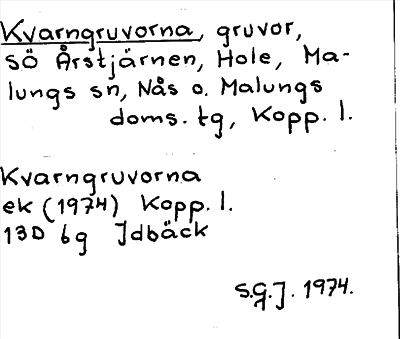 Kvarngruvorna, gruvor,
SÖ Årstjärnen, Hole, Ma-
lungs sn, Nås o. Malungs
doms. tg, Kopp. l.
Kvarngruvorna
ek (1974) Kopp. l.
13D 6g Idbäck
S.G.J. 1974.